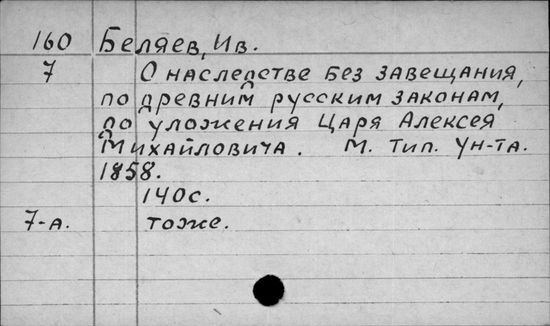 160 Беляев, Ив.
7 О наследстве без завещания,
по древним русским законам,
до уложения Царя Алексея
Михайловича. М. Тип. Ун-та.
1858.
140с.
7-а. тоже.